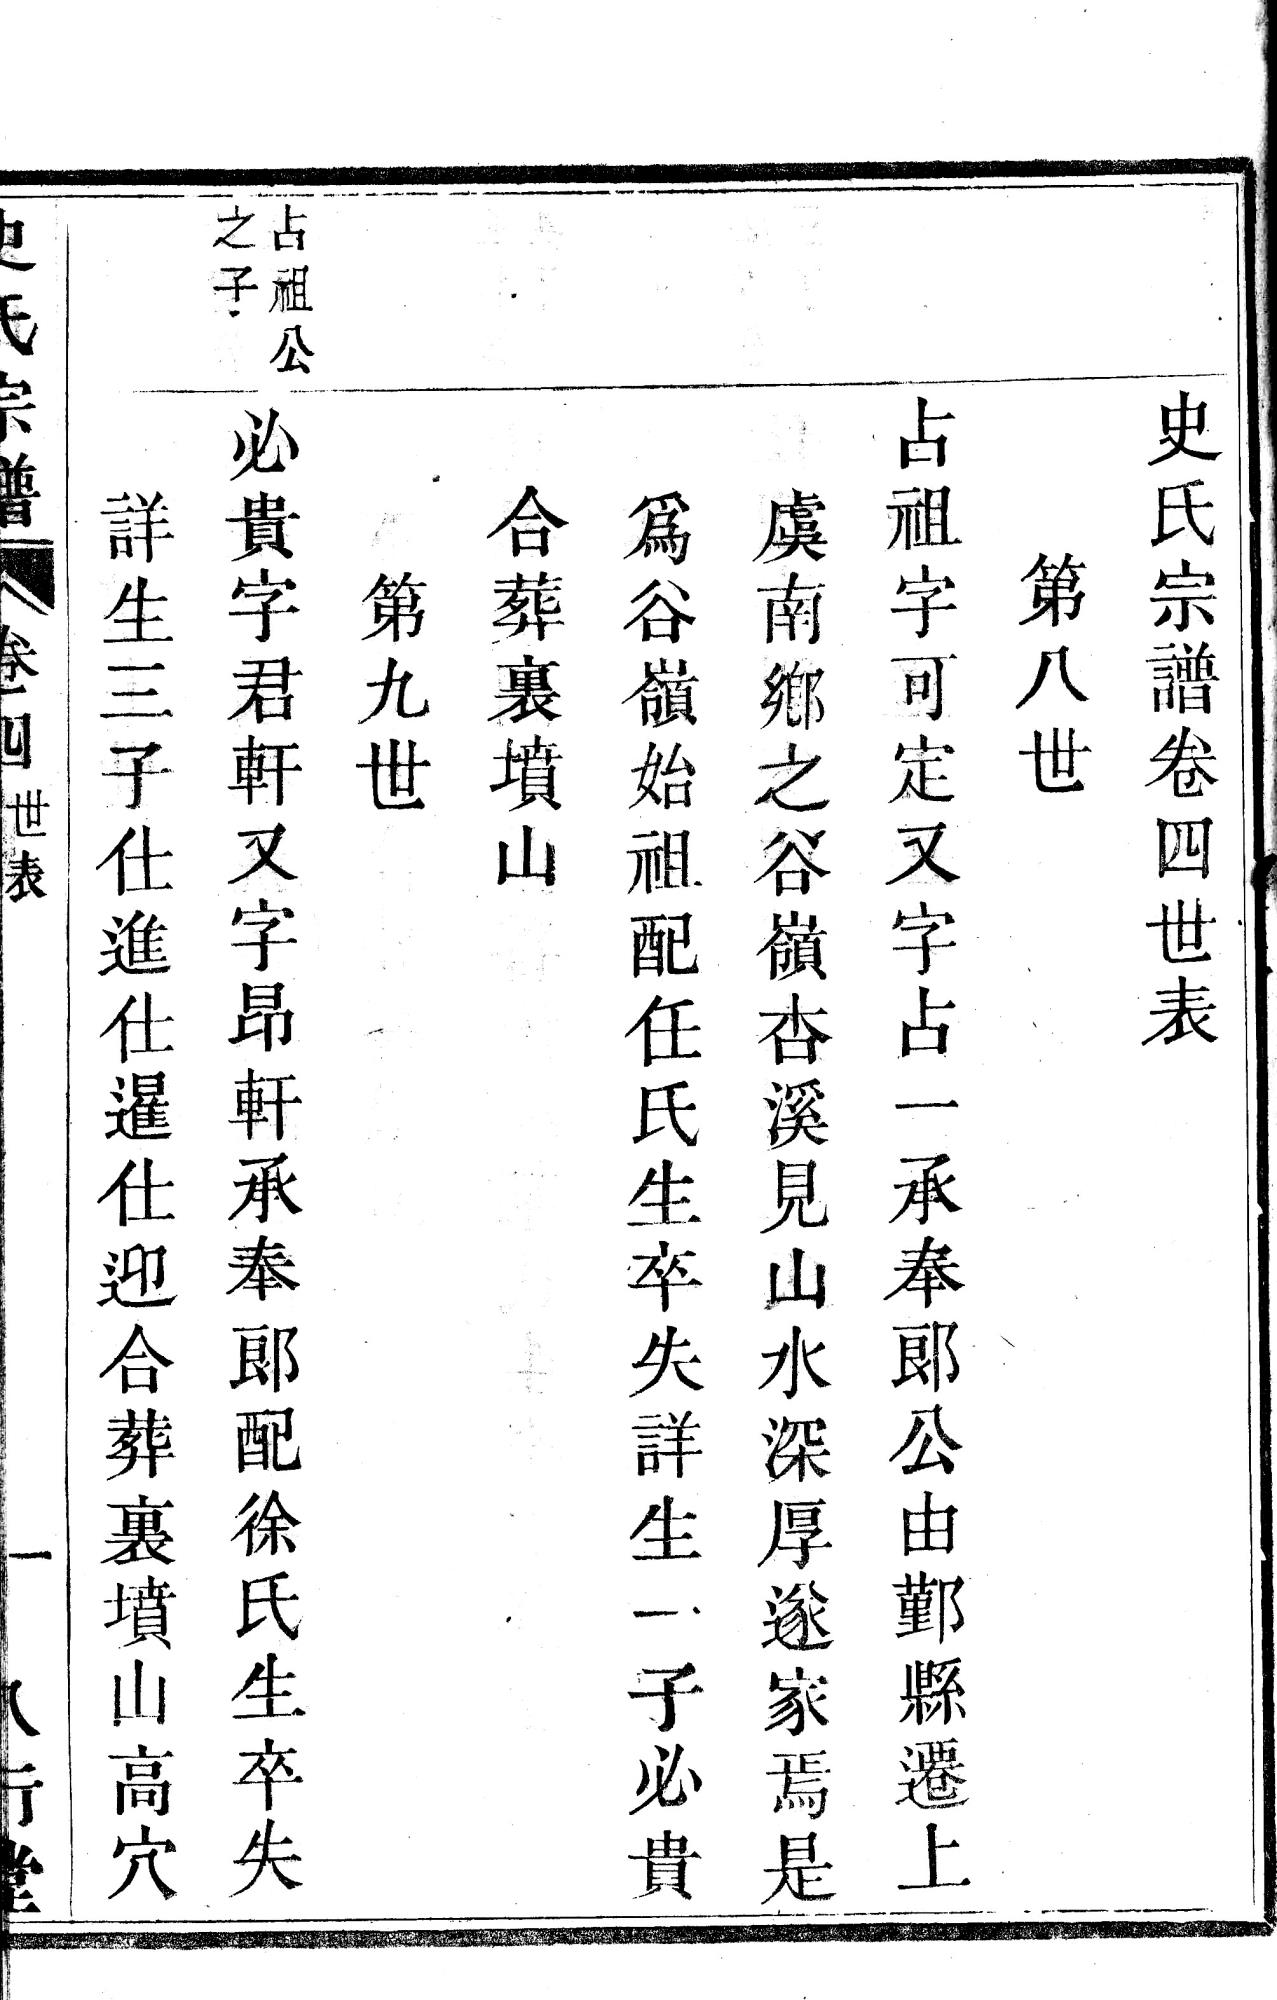 史氏宗譜卷四世表
第八世
占祖字可定又字占一承奉郎公由鄞縣遷上
虞南鄉之谷嶺杏溪見山水深厚遂家焉是
爲谷嶺始祖配任氏生卒失詳生一子必貴
合葬裏墳山
第九世
占祖公
之子
必貴字君軒又字昂軒承奉郎配徐氏生卒失
詳生三子仕進仕暹仕迎合葬裏墳山高穴
史氏宗譜 卷四 世表 一 八行堂